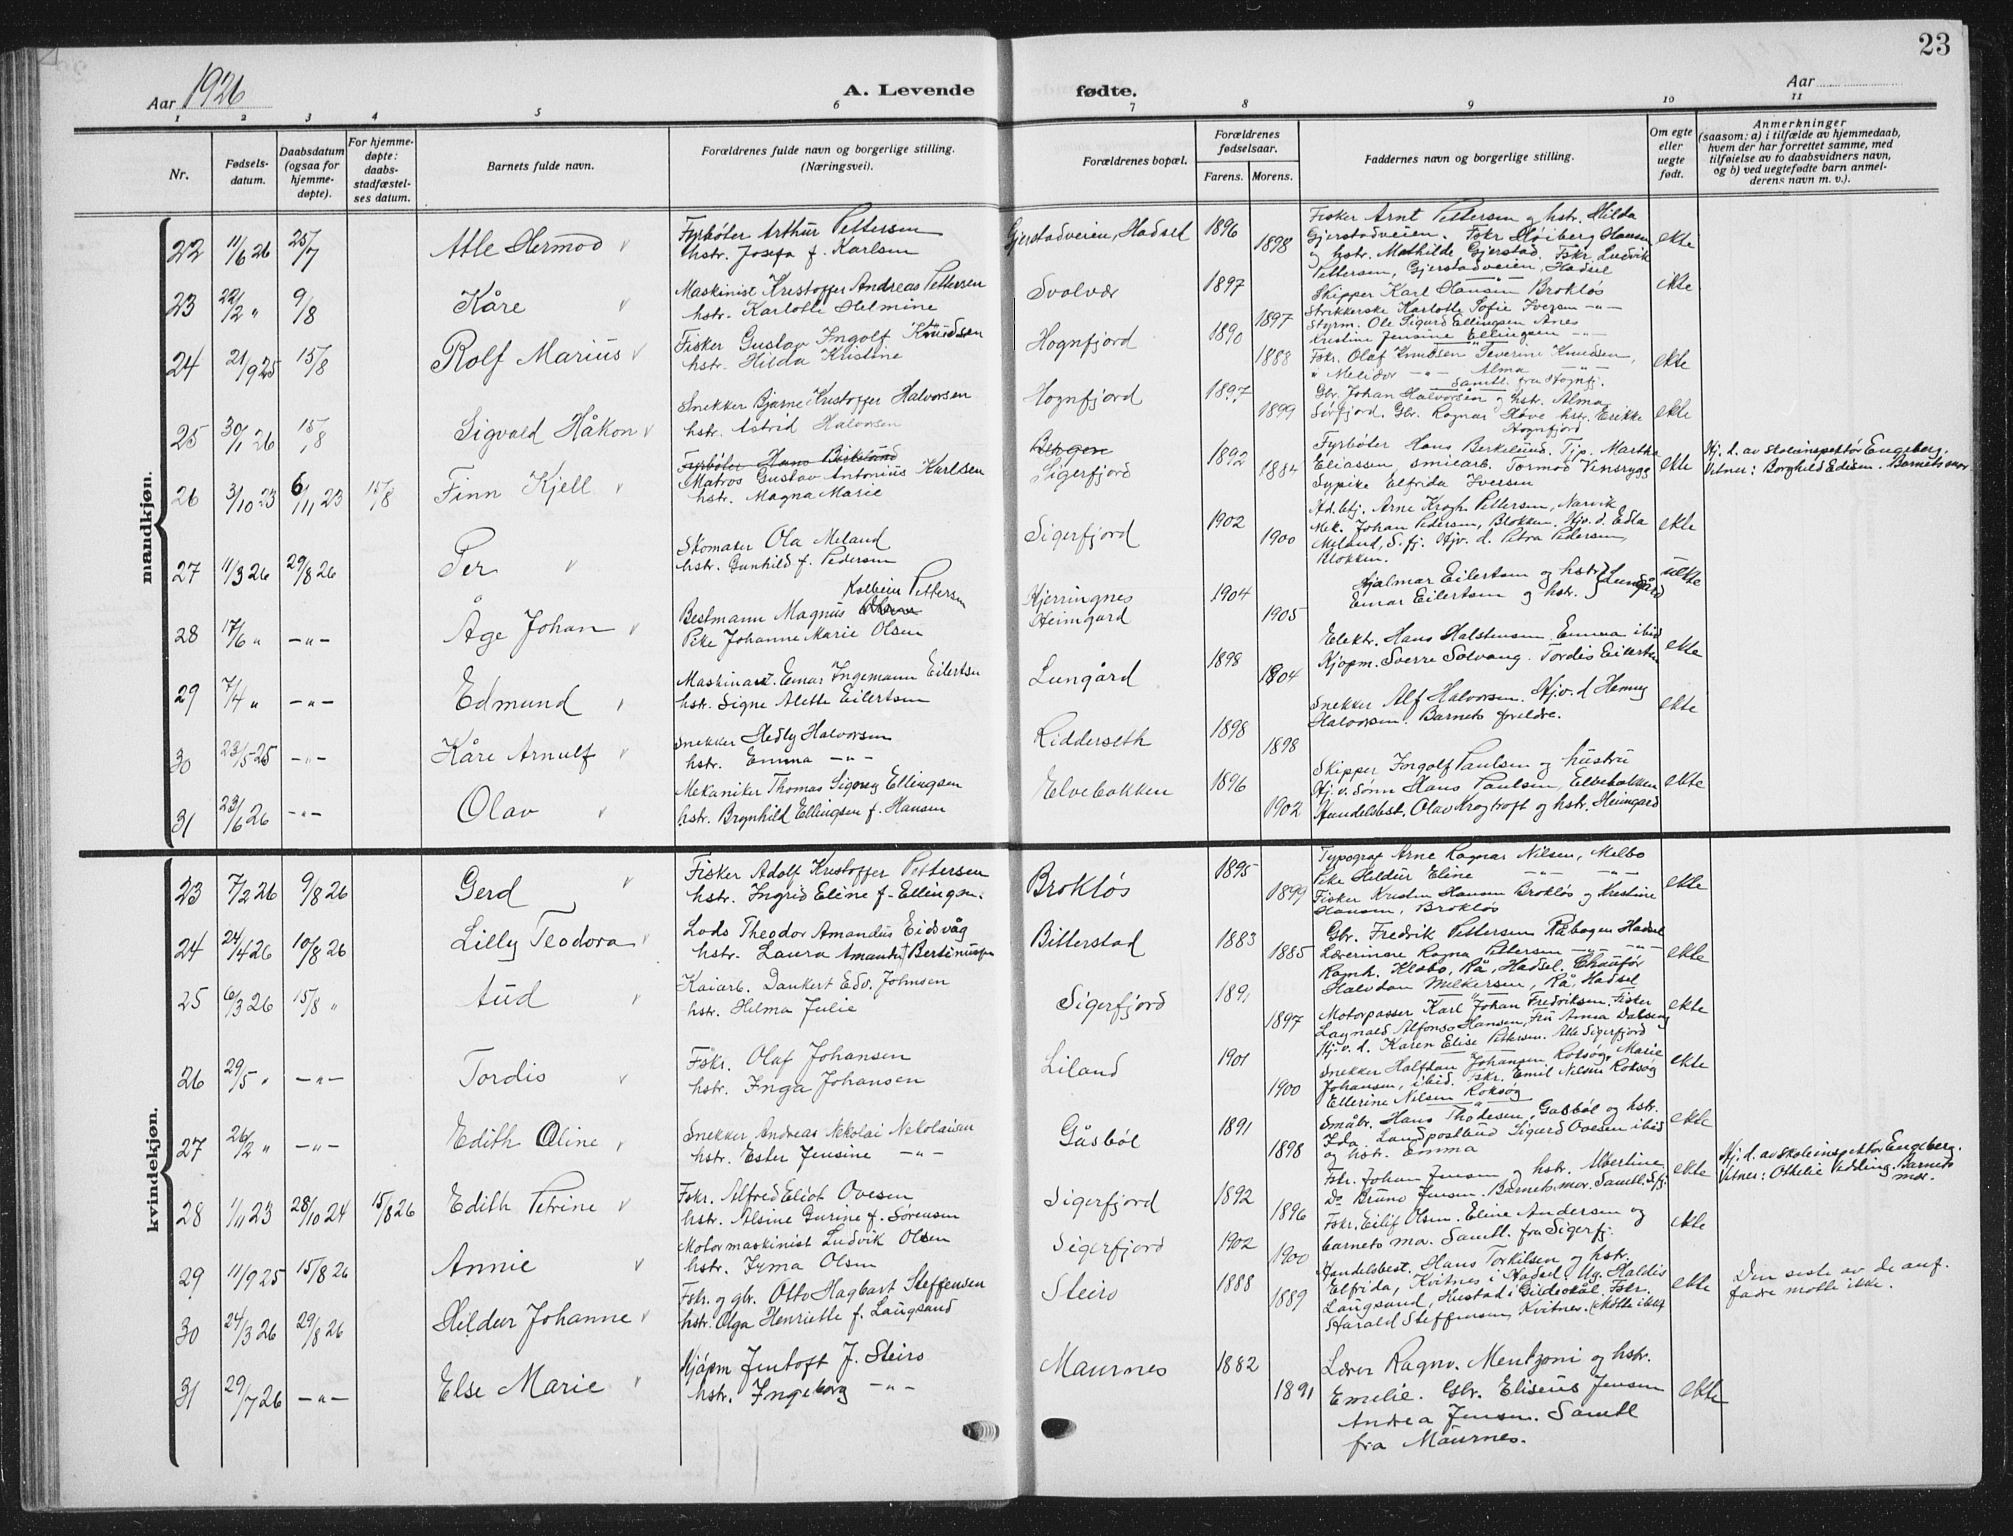 23
Aar 1926
A. Levende
fødte.
Aar
1 2 3 4 5 6 7 8 9 10 11
Nr.
Fødsels-
datum.
Daabsdatum
(ogsaa for
hjemme-
døpte).
For hjemme-
døpte:
daabs-
stadfæstel-
ses datum.
Barnets fulde navn.
Forældrenes fulde navn og borgerlige stilling.
(Næringsvei).
Forældrenes bopæl.
Forældrenes
fødselsaar.
Farens. Morens.
Faddernes navn og borgerlige stilling.
Om egte
eller
uegte
født.
Anmerkninger
(saasom: a) i tilfælde av hjemmedaab,
hvem der har forrettet samme, med
tilføielse av to daabsvidners navn,
og b) ved uegtefødte barn anmel-
derens navn m. v.).
mandkjøn.
22 11/6 26 25/7 Atle Hermod
Fyrbøter Arthur Pettersen
hstr. Josefa f. Karlsen
Gjerstadveien, Hadsel 1896 1898
Fisker Arnt Pettersen og hstr. Hilda
Gjerstadveien. Fskr Høiberg Hansen
og hstr. Mathilde Gjerstad. Fskr Ludvik
Pettersen, Gjerstadveien, Hadsel
ekte
23 22/2 " 9/8 Kåre
Maskinist Kristoffer Andreas Pettersen
hstr. Karlotte Helmine
Svolvær 1897 1897
Skipper Karl Hansen Brokløs
Strikkerske Karlotte Sofie Iversen -"-
Styrm. Ole Sigurd Ellingsen
Kristine Jensine Ellingsen -"-
ekte
24 21/9 25 15/8 Rolf Marius
Fisker Gustav Ingolf Knudsen
hstr. Hilda Kristine
Hognfjord 1890 1888
Fskr. Olaf Knudsen Severine Knudsen,
" Melidor -"- Alma -"-
Samtl. fra Hognfj.
ekte
25 30/1 26 15/8 Sigvald Håkon
Snekker Bjarne Kristoffer Halvorsen
hstr. Astrid Halvorsen
Hognfjord 1897 1899
Gbr. Johan Halvorsen og hstr. Alma
Sørfjord. Gbr. Ragnar Høve hstr. Erikke
Hognfjord
ekte
26 3/10 23 6/11 23 15/8 Finn Kjell
Fyrbøter Hans Birkelund
Matros Gustav Antonius Karlsen
hstr. Magna Marie
Bergen
Sigerfjord 1892 1884
Fyrbøter Hans Berkelund. Tjp. Martha
Eliassen, smilarb. Tormod Vinsrygg
Sypike Elfrida Iversen
ekte
Hj. d. av skoleinspektør Engeberg.
Vitner: Borghild Edisen. Barnets mor
27 11/3 26 29/8 26 Per
Skomaker Ola Meland
hstr. Gunhild f. Pedersen
Sigerfjord 1902 1900
Ad. btj. Arne Krogh Pettersen, Narvik
Mek. Johan Pedersen, Blokken. Hjv. d. Edla
Meland, S.fj. Hjv. d. Petra Pedersen,
Blokken.
ekte
28 17/6 " -"- Åge Johan
Kolbein Pettersen
Bestmann Magnus Olsen
Pike Johanne Marie Olsen
Kjerringnes
Heimgard 1904 1905
Hjalmar Eilertsen og hstr.
Einar Eilertsen og hstr. } Lungård
uekte
29 7/4 " -"- Edmund
Maskinast. Einar Ingemann Eilertsen
hstr. Signe Alette Eilertsen
Lungård 1898 1904
Elektr. Hans Halstensen. Emma ibid
Kjøpm. Sverre Solvang. Tordis Eilertsen
ekte
30 23/5-25 -"- Kåre Arnulf
Snekker Hedly Halvorsen
hstr. Emma -"-
Ridderseth 1898 1898
Snekker Alf Halvorsen. Hj. v. d Henny
Halvorsen. Barnets foreldre.
ekte
31 23/6 26 -"- Olav
Mekaniker Thomas Signey Ellingsen
hstr. Brynhild Ellingsen f. Hansen
Elvebakken 1896 1902
Skipper Ingolf Paulsen og hustru
Hj. v. sønn Hans Paulsen, Elvebakken
Handelsbest. Olav Krogtroft og hstr. Heimgard
ekte
kvindekjøn.
23 7/2 26 9/8 26 Gerd
Fisker Adolf Kristoffer Pettersen
hstr. Ingrid Eline f. Ellingsen.
Brokløs 1895 1899
Typograf Arne Ragnar Nilsen, Melbo
Pike Hildur Eline -"- -"-
Fisker Kristen Hansen Brokløs og Kristine
Hansen, Brokløs
ekte
24 24/4 26 10/8 26 Lilly Teodora
Lods Theodor Amandus Eidsvåg
hstr. Laura Amanda f. Bertinussen
Bitterstad 1883 1885
Gbr. Fredrik Pettersen Råbogen Hadsel
Lærerinne Ragna Pettersen -"- -"-
Ragnh. Klebo, Rå, Hadsel. Chauffør
Halvdan Milkersen, Rå, Hadsel
ekte
25 6/3 26 15/8 " Aud
Kaiarb. Dankert Edv. Johnsen
hstr. Helma Julie
Sigerfjord 1891 1897
Motorpasser Karl Johan Fredriksen. Fisker
Lagnald Alfonso Hansen, Fru Anna Dalseng
Hj. v. d. Karen Elise Pettersen. Alle Sigerfjord
ekte
26 29/5 " -"- Tordis
Fskr. Olaf Johansen
hstr. Inga Johansen
Liland 1901 1900
Snekker Halfdan Johansen Roksøg, Marie
Johansen, ibid. Fskr. Emil Nilsen Roksøg
Ellerine Nilsen Roksøg
ekte
27 26/2 " -"- Edith Oline
Snekker Andreas Nekolai Nekolaisen
hstr. Ester Jensine -"-
Gåsbøl 1891 1898
Småbr. Hans Thodesen, Gasbøl og hstr.
Ida. Landpostbud Sigurd Ovesen ibid
og hstr. Emma
ekte
28 1/11 23 28/10 24 15/8 26 Edith Petrine
Fskr. Alfred Eliot Ovesen
hstr. Alsine Gurine f. Sørensen
Sigerfjord 1892 1896
Fskr. Johan Jensen og hstr. Albertine
Do Bruno Jensen. Barnets mor. Samtl. S.fj.
ekte
Hj. d. av skoleinspektør Engeberg.
Vitner: Ottelie Vedling. Barnets
mor.
29 11/9 25 15/8 26 Annie
Motormaskinist Ludvik Olsen
hstr. Irma Olsen
Sigerfjord 1902 1900
Fskr. Eilif Olsen. Eline Andersen og
barnets mor. Samtl. fra Sigerfj.
ekte
30 24/3 26 29/8 26 Hildur Johanne
Fskr. og gbr. Otto Hagbart Steffensen
hstr. Olga Henriette f. Laugsand
Steiro 1888 1889
Handelsbest. Hans Torkilsen og hstr.
Elfrida, Kvitnes i Hadsel. Ug. Haldis
Laugsand, Hustad i Gildeskål. Fskr.
Harald Steffensen, Kvitnes. (Møtte ikke)
ekte
Den siste av de anf.
fadre møtte ikke.
31 29/7 26 -"- Else Marie
Kjøpm Jentoft J. Steiro
hstr. Ingeborg -"-
Maurnes 1882 1891
Lærer Ragnv. Mentzoni og hstr.
Emelie. Gbr. Eliseus Jensen
Andrea Jensen. Samtl
fra Maurnes.
ekte